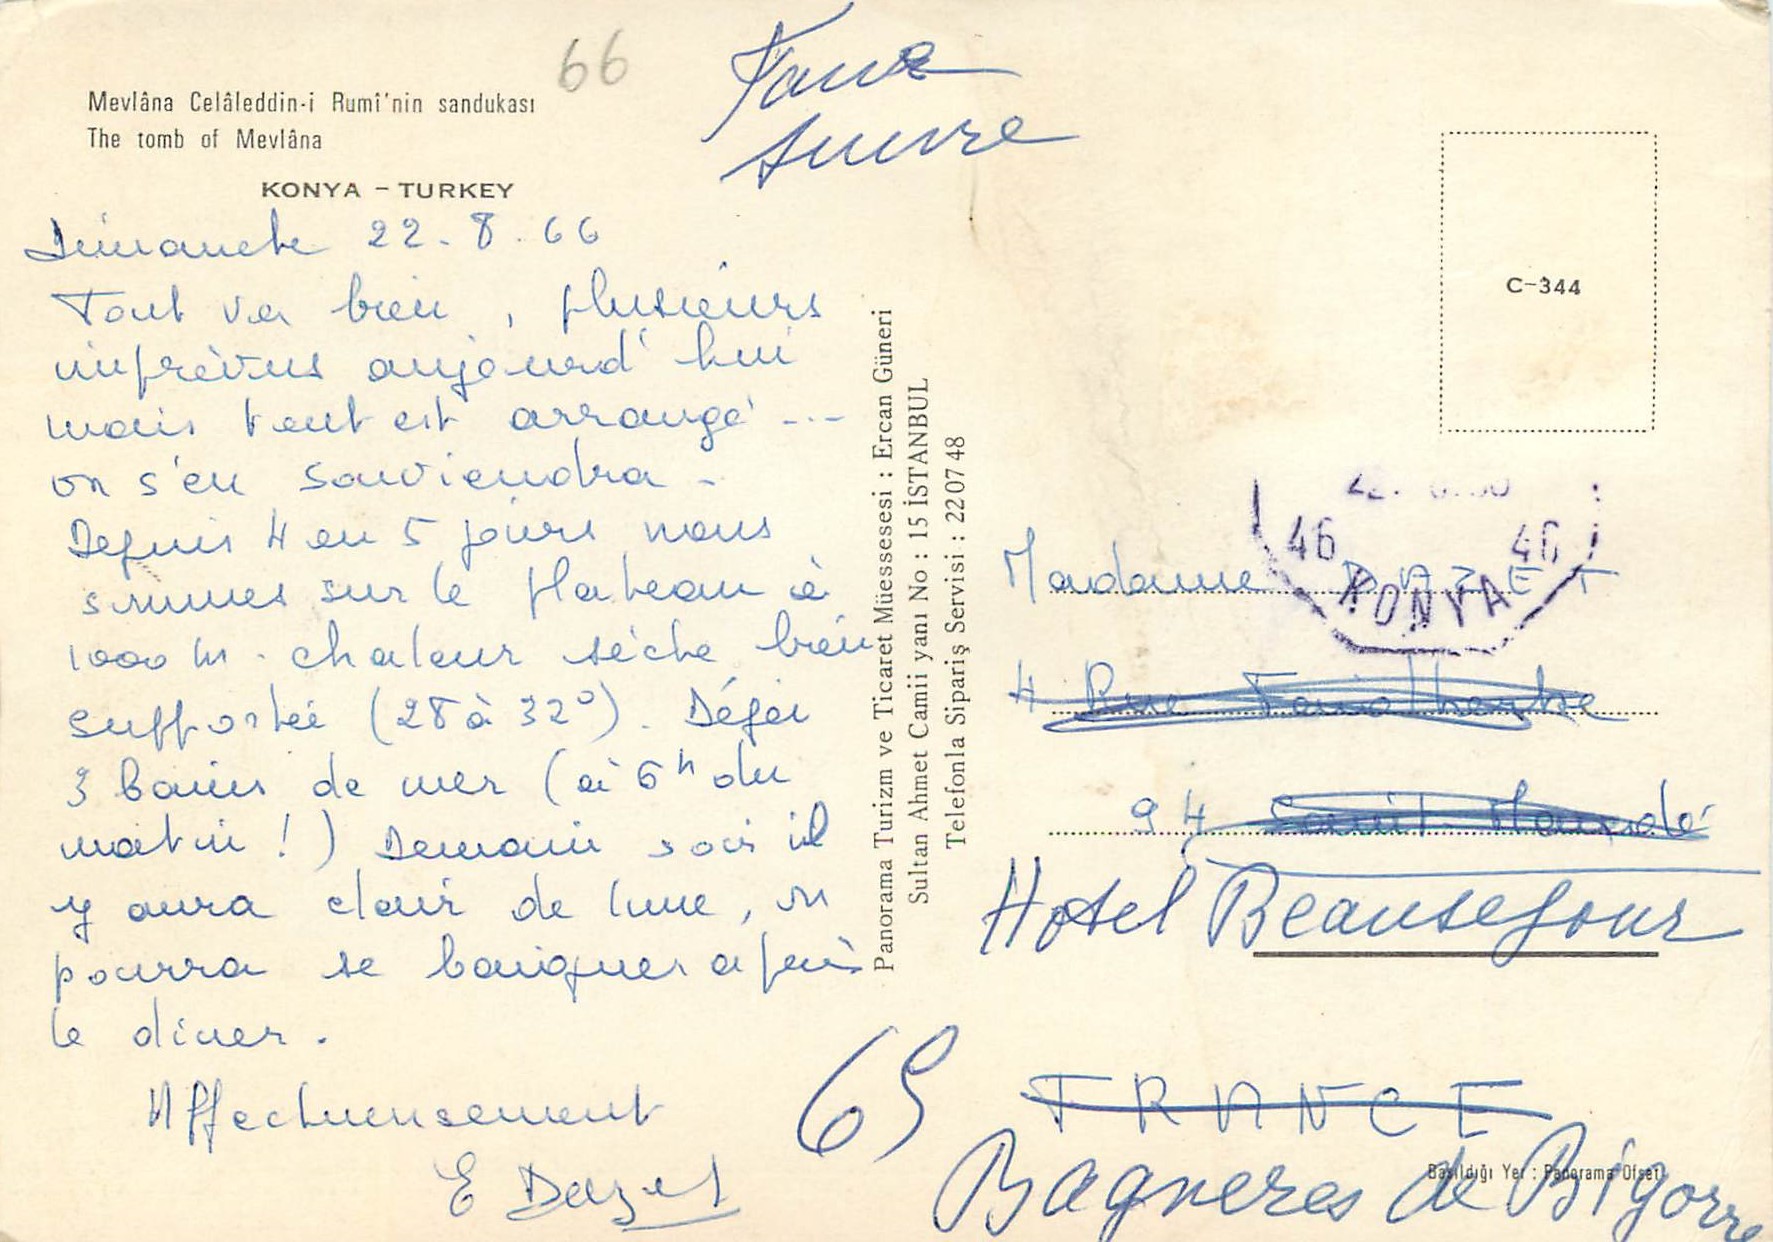 66
Faire
suivre
Mevlâna Celâleddin-i Rumî'nin sandukası
The tomb of Mevlâna
KONYA - TURKEY
Dimanche 22.8.66
Tout va bien, plusieurs
imprévus aujourd'hui
mais tout est arrangé ...
on s'en souviendra -
Depuis 4 ou 5 jours nous
sommes sur le plateau à
1000 m. chaleur sèche bien
supportée (28 à 32°). Déjà
3 bains de mer (à 6h du
matin !) Demain soir il
y aura clair de lune, on
pourra se baigner après
le diner.
Affectueusement
E Dazet
Panorama Turizm ve Ticaret Müessesesi : Ercan Güneri
Sultan Ahmet Camii yanı No : 15 İSTANBUL
Telefonla Sipariş Servisi : 22 07 48
C-344
46 46
KONYA
Madame DAZET
4 Rue Faidherbe
94 Saint-Mandé
Hotel Beausejour
65 FRANCE
Bagneres de Bigorre
Basıldığı Yer : Panorama Ofset